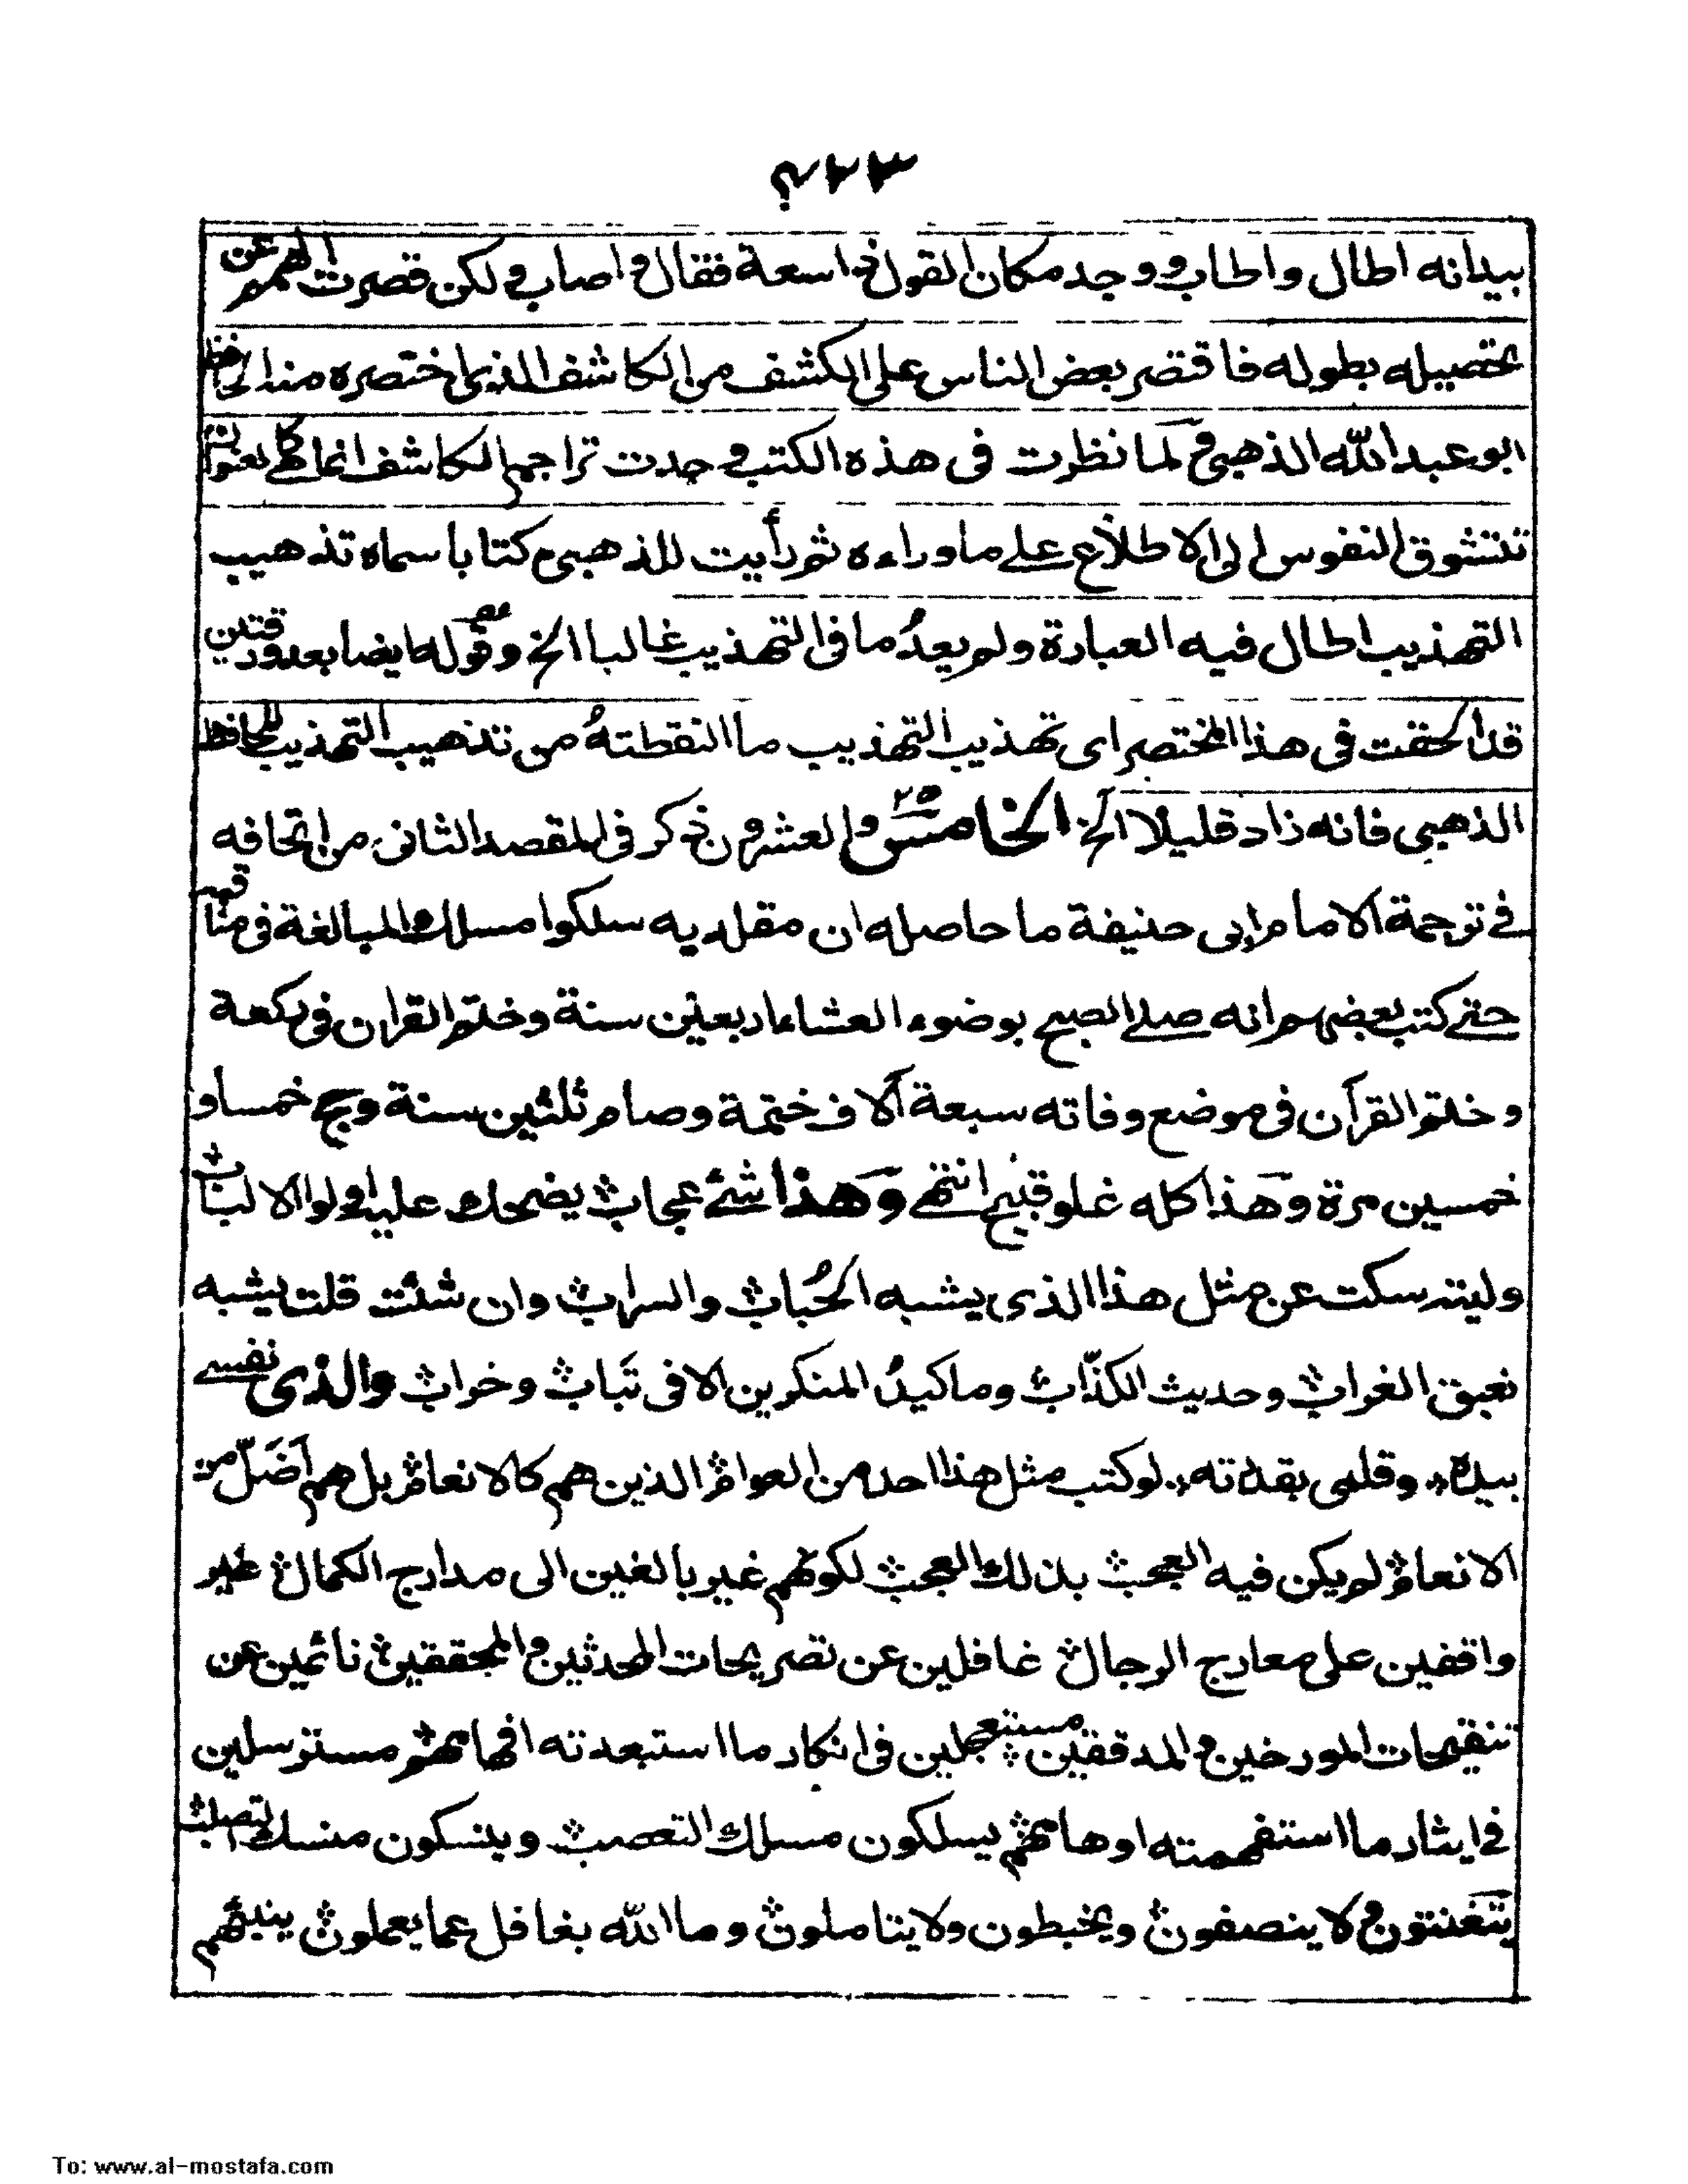 بيدانه اطال واطاب ووجد مكان القول ذا سعة فقال واصاب ولكن قصرت الهمم عن
تحصيله بطوله فاقتصر بعض الناس على الكشف من الكاشف الذى اختصره منه الحافظ
ابو عبد الله الذهبى ولما نظرت فى هذه الكتب وجدت تراجم الكاشف انما هى كالعنوان
تتشوق النفوس الى الاطلاع على ما وراءه ثم رأيت للذهبى كتابا سماه تذهيب
التهذيب اطال فيه العبارة ولم يعد ما فى التهذيب غالبا الخ وقوله ايضا بعد ورقتين
قد الحقت فى هذا المختصر اى تهذيب التهذيب ما التقطته من تذهيب التهذيب للحافظ
الذهبى فانه زاد قليلا الخ الخامس والعشرون ٢٥ ذكر فى المقصد الثانى من اتحافه
فى ترجمة الامام ابى حنيفة ما حاصله ان مقلديه سلكوا مسلك المبالغة فى مناقبه
حتى كتب بعضهم انه صلى الصبح بوضوء العشاء اربعين سنة وختم القران فى ركعة
وختم القرآن فى موضع وفاته سبعة آلاف ختمة وصام ثلثين سنة وحج خمسا و
خمسين مرة وهذا كله غلو قبيح انتهى وهذا شئ عجاب يضحك عليه اولو الالباب
وليته سكت عن مثل هذا الذى يشبه الحُباب والسراب وان شئت قلت يشبه
نعيق الغراب وحديث الكذّاب وما كيدُ المنكرين الا فى تَباب وخراب والذى نفسى
بيده وقلمى بقدرته لو كتب مثل هذا احد من العوام الذين هم كالانعام بل هم أضَلّ من
الانعام لم يكن فيه العجب بذلك العجب لكونهم غير بالغين الى مدارج الكمال غير
واقفين على معارج الرجال غافلين عن تصريحات المحدثين والمحققين نائمين عن
تنقيحات المورخين والمدققين مستعجلين فى انكار ما استبعدته افهامهم مسترسلين
فى ايثار ما استفهمته اوهامهم يسلكون مسلك التعصب وينسكون منسك التصلب
يتعنتون ولا ينصفون ويخبطون ولا يتاملون وما الله بغافل عما يعملون ينبئهم
To: www.al-mostafa.com